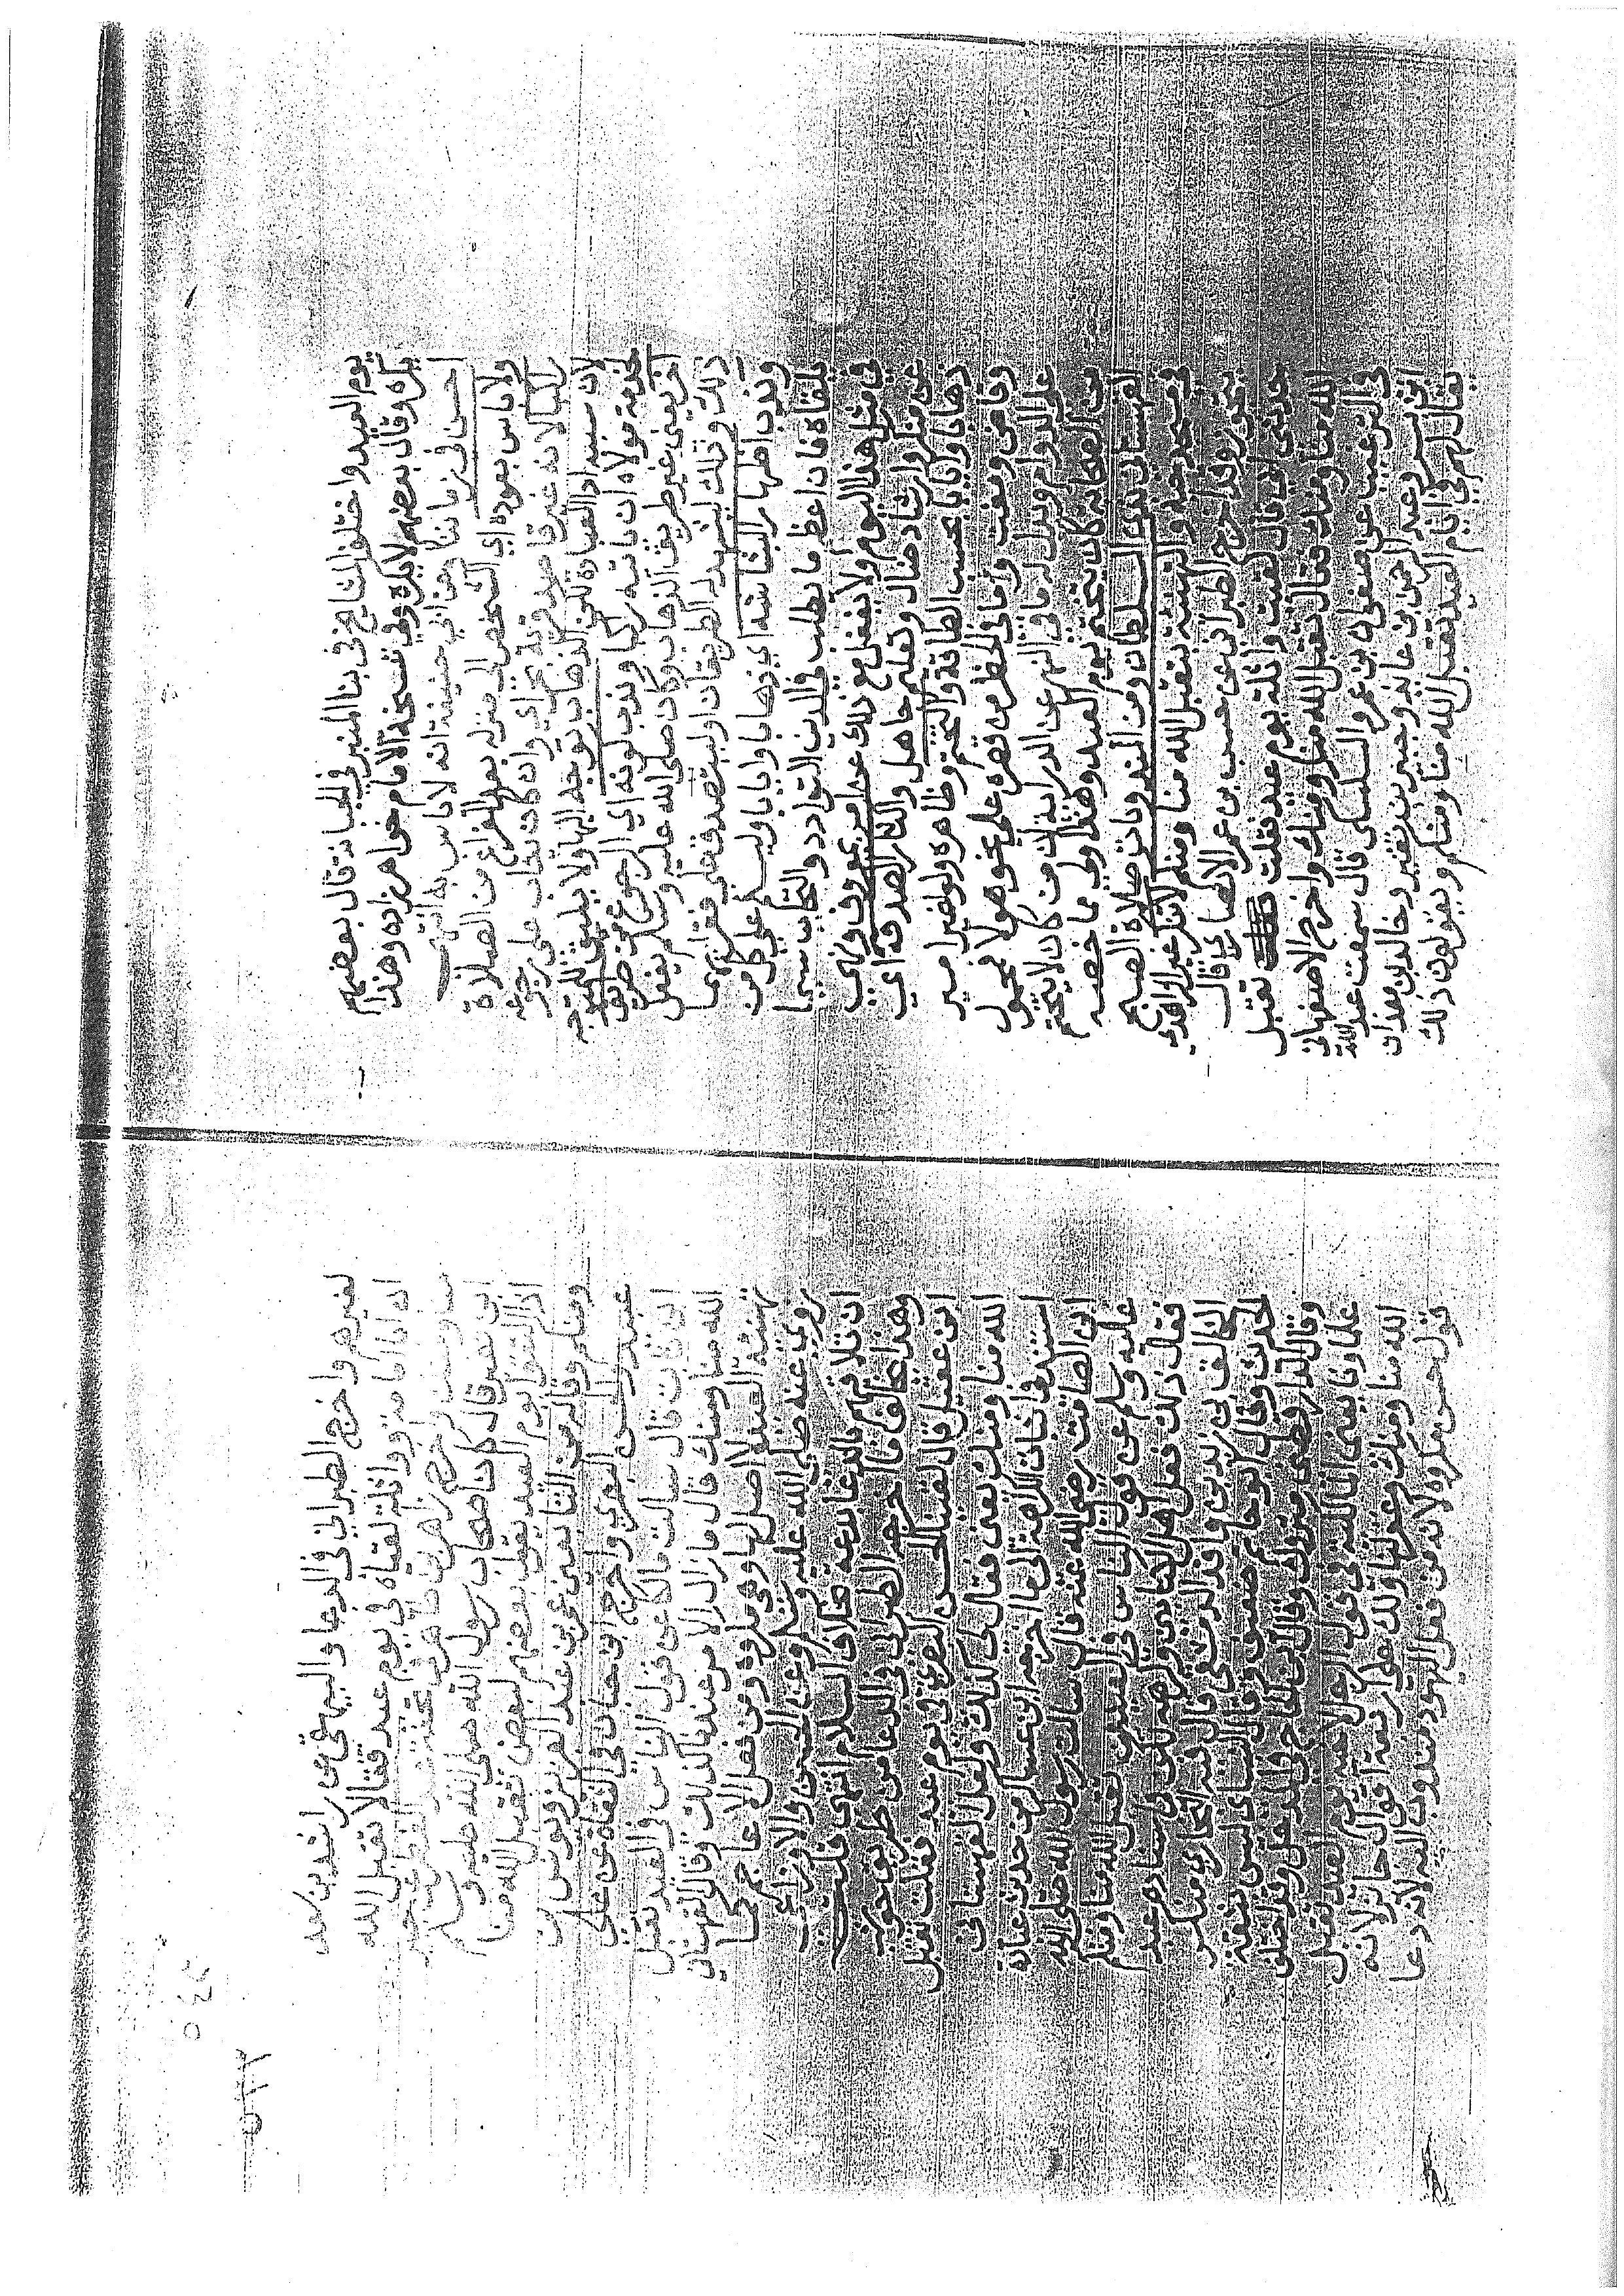 يوم العيد واختلف المشايخ في بنا المنبر في الجبانة قال بعضهم
يكره وقال بعضهم لا يكره وفي نسخة الامام خواهر زاده وهذا
احسن في زماننا وعن ابي حنيفة انه لا باس به انتهى
ولا باس بعوده اي الشخص الى منزله بعد الفراغ من الصلاة
راكبا لانه غير قاصد قربة نحو اي وان كان يثاب على رجوعه
لانه سبب اداء العبادة لكن الذهاب توجه اليها ولا يليق للمتوجه
لخدمة مولاه ان ياتيه راكبا وندب كونه اي الرجوع من طريق
اخر يعني غير طريق الذهاب وكان صلى الله عليه وسلم يفعل
ذلك وذلك ليشهد له الطريقان وليتصدق على فقرايهما
وندب اظهار البشاشة اي ذهابا وايابا ويسلم على كل من
يلقاه فان اعظم ما يطلب في الدين التوادد والتحابب سيما
في مثل هذا اليوم ولا يغفل مع ذلك عن امر بمعروف ونهي
عن منكر وارشاد ضال وتعليم جاهل والثار الصدقة اي
ذهابا وايابا بحسب الطاقة والتختم وظاهره ولو لغير امير
وقاض ومفت وما في الحظر من قصره على نحو هولا محمول
على الدوام ويدل له ما في النهر عن الدراية ان من كان لا يتختم
من الصحابة كان يتختم يوم العيد وهذا اولى مما خصه
القهستاني بذي السلطان ومن المندوبات صلاة الصبح
في مسجد حيه والتهنئة بتقبل الله منا ومنكم لا تنكر
بنحوه وقد اخرج الطبراني عن حبيب بن عمر الانصاري قال
حدثني ابي قال لقيت واثلة يوم عيد فقلت تقبل
الله منا ومنك فقال تقبل الله منا ومنك واخرج الاصفهاني
في الترغيب عن صفوان بن عمرو السكسكي قال سمعت عبد الله
ابن بسر وعبد الرحمن بن عائذ وجبير بن نفير وخالد بن معدان
يقال لهم في ايام العيد تقبل الله منا ومنكم ويقولون ذلك
٥٤٤
لغيرهم واخرج الطبراني في الدعا والبيهقي عن راشد بن سعد
ان ابا امامة وواثلة لقياه في يوم عيد فقالا تقبل الله
منا ومنك واخرج زاهر بن طاهر عن جبير
ابن نفير قال كان اصحاب رسول الله صلى الله عليه وسلم
اذا التقوا يوم العيد يقول بعضهم لبعض تقبل الله منا
ومنكم وقاله من التابعين عمر بن عبد العزيز ويونس بن
عبيد والحسن البصري واخرج ابن حبان في الثقات عن علي
ابن ثابت قال سالت مالكا عن قول الناس في العيد تقبل
الله منا ومنك قال ما زال الامر عندنا كذلك وقال القهستاني
تهنئة العيد لا اصل لها وهي مكروهة ومن فعل الاعاجم كما
روي عنه صلى الله عليه وسلم وعن الحسن والاوزاعي
ان تلاقيهم بالدعا بدعة بخلاف السلام انتهى قلت
وهذا يخالف ما اخرجه الطبراني في الدعا من طريق حوشب
ابن عقيل قال لقينا الحسن البصري في يوم عيد فقلت تقبل
الله منا ومنك يعني فقال لي كذلك ولعل القهستاني
استند في اثبات الكراهة الى ما اخرجه ابن عساكر من حديث عبادة
ابن الصامت رضي الله عنه قال سالت رسول الله صلى الله
عليه وسلم عن قول الناس في العيدين تقبل الله منا ومنكم
فقال ذلك فعل اهل الكتابين وكرهه لكن في اسناده عبد
الخالق بن زيد بن واقد الدمشقي قال فيه البخاري منكر
الحديث وقال ابو حاتم ضعيف وقال النسائي ليس بثقة
وقال الدارقطني متروك
علما وقا يعني اما للسنة في قول الرجل لاخيه يوم العيد تقبل
الله منا ومنك وغفر لنا ولك على اربعة اقوال جائز لانه
قول حسن مكروه لانه من فعل اليهود مندوب اليه لانه دعا